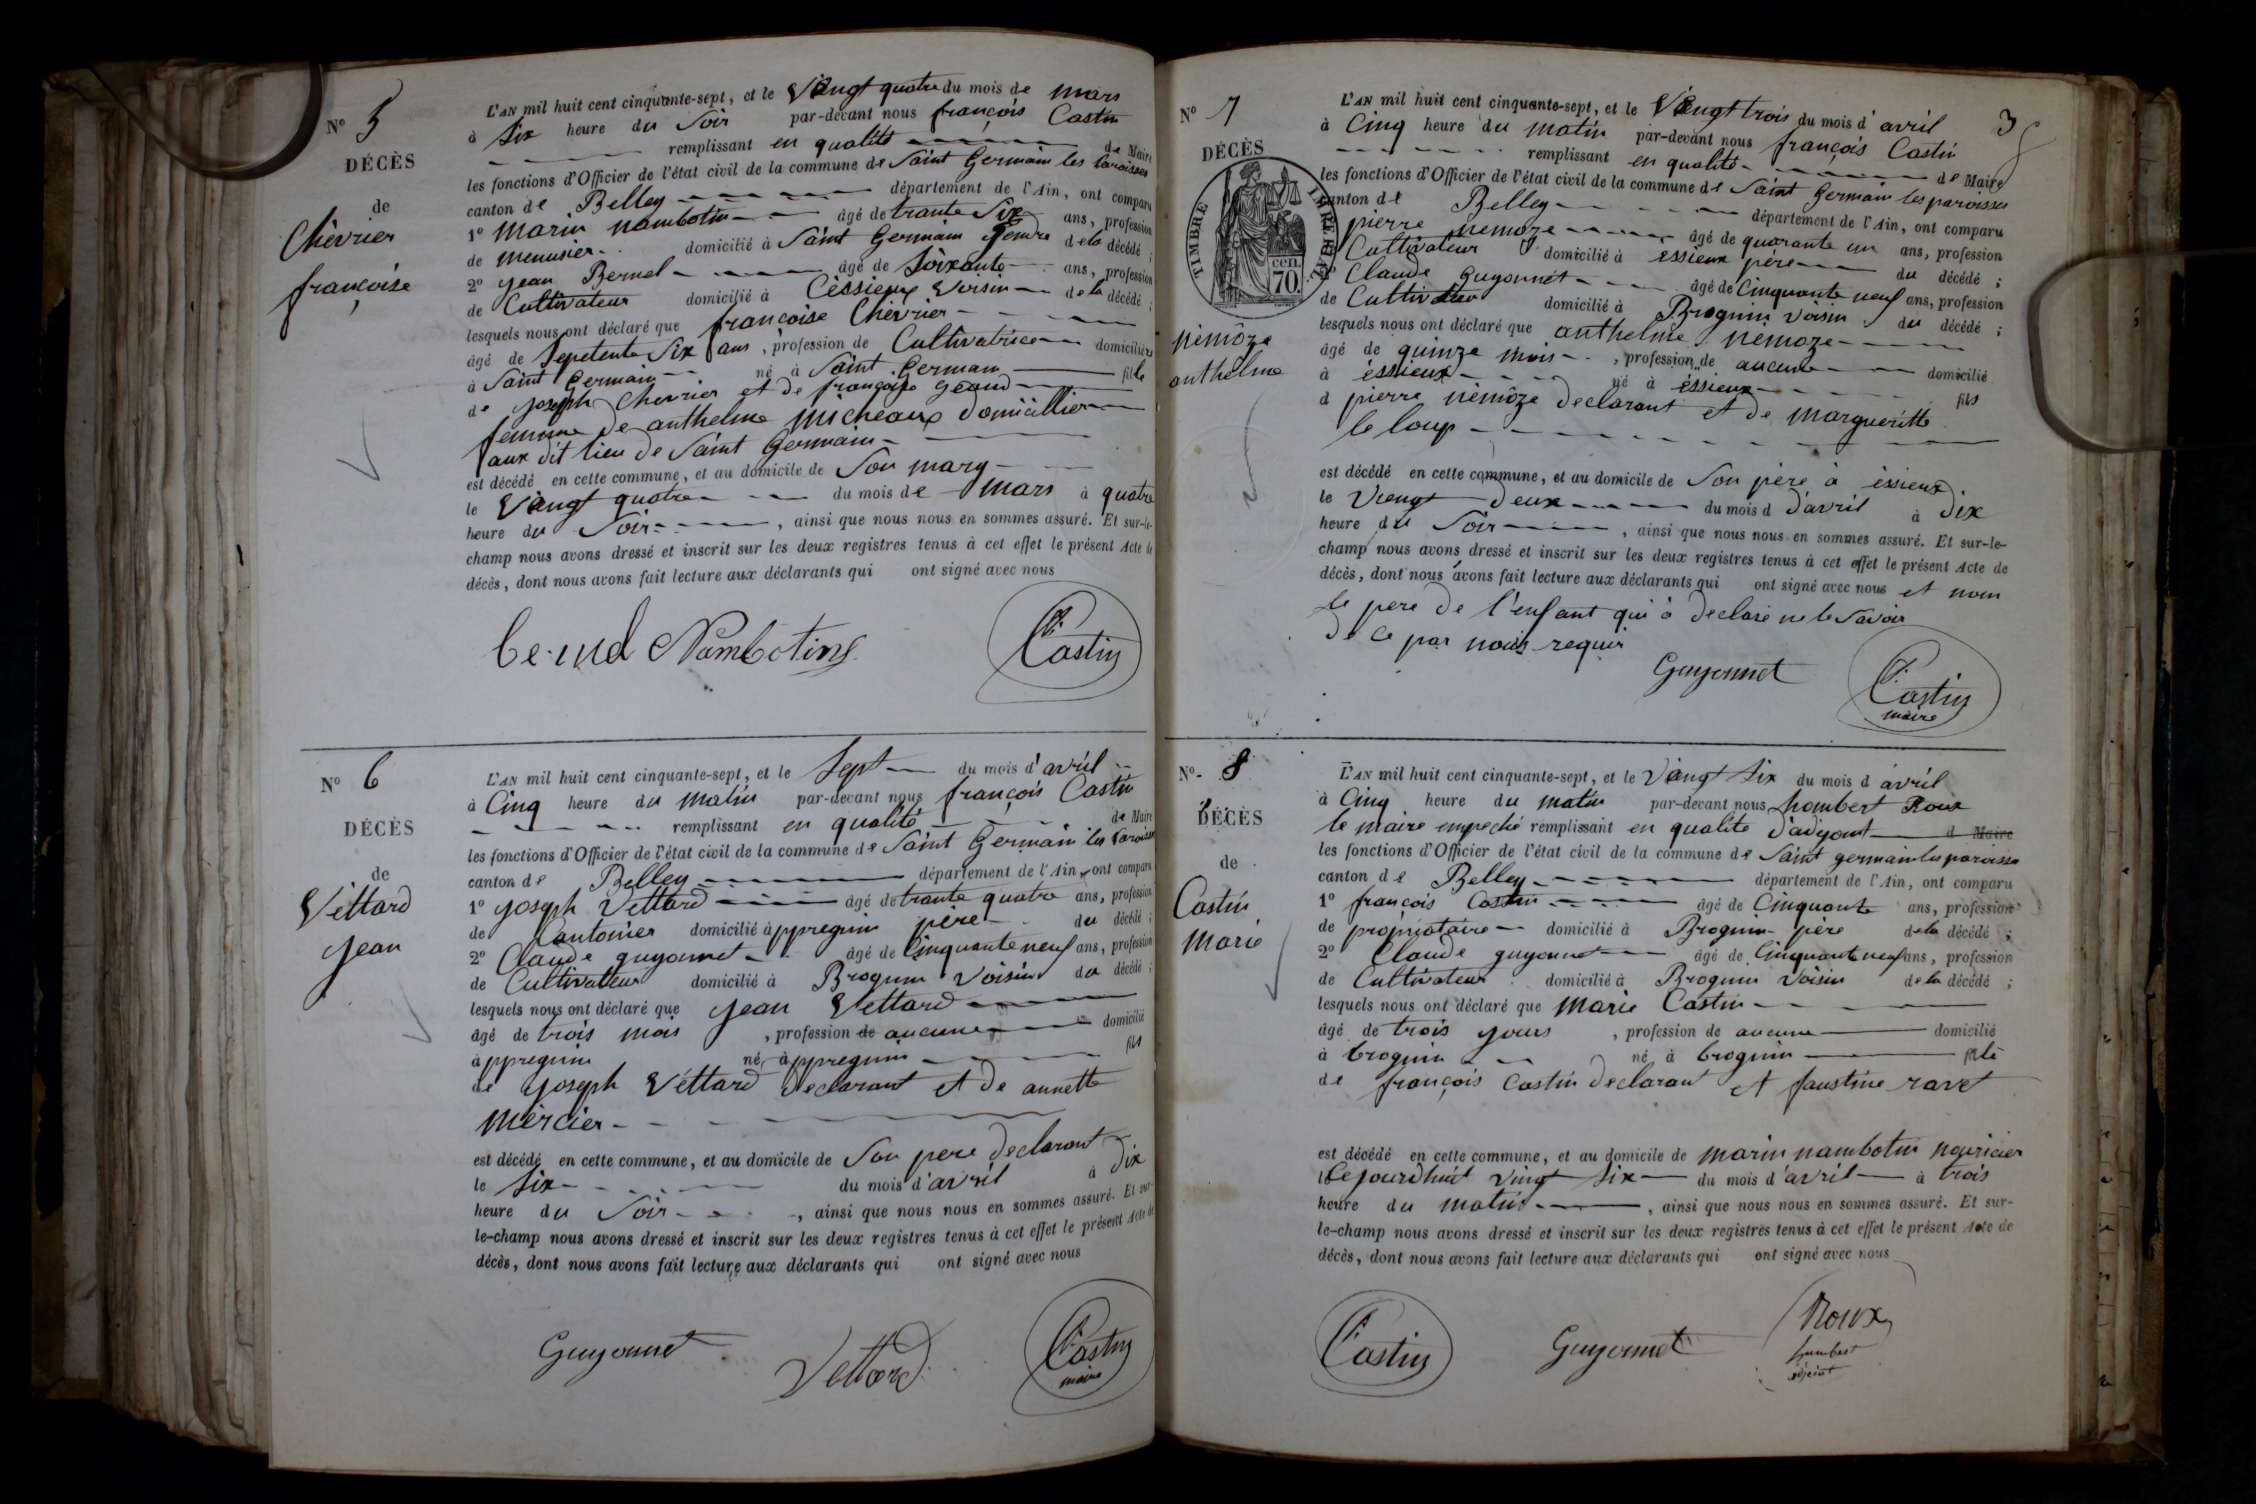 N° 5
DÉCÈS
de
Chevrier
françoise
L'AN mil huit cent cinquante-sept, et le Vingt quatre du mois de mars
à Six heure du Soir par-devant nous françois Castin
remplissant en qualité de Maire
les fonctions d'Officier de l'état civil de la commune de Saint Germain les Paroisses
canton de Belley département de l'Ain, ont comparu
1° marin nambotin âgé de trante Six ans, profession
de menuisier domicilié à Saint Germain gendre de la décédé ;
2° jean Bernel âgé de Soixante ans, profession
de Cultivateur domicilié à Cèssieux Voisin de la décédé ;
lesquels nous ont déclaré que françoise Chevrier
âgé de Sepetente Six ans, profession de Cultivatrice domiciliée
à Saint Germain né à Saint German fille
de joseph Chevrier et de françoise geand
femme de anthelme micheaux domicillier
aux dit lieu de Saint Germain
est décédé en cette commune, et au domicile de Son mary
le Vingt quatre du mois de mars à quatre
heure du Soir, ainsi que nous nous en sommes assuré. Et sur-le-
champ nous avons dressé et inscrit sur les deux registres tenus à cet effet le présent Acte de
décès, dont nous avons fait lecture aux déclarants qui ont signé avec nous
Nambotin
Castin
N° 6
DÉCÈS
de
Véttard
jean
L'AN mil huit cent cinquante-sept, et le Sept du mois d'avril
à Cinq heure du matin par-devant nous françois Castin
remplissant en qualité de Maire
les fonctions d'Officier de l'état civil de la commune de Saint Germain les Paroisses
canton de Belley département de l'Ain, ont comparu
1° joseph Vettard âgé de trante quatre ans, profession
de Cantonier domicilié à ppregnin père du décédé ;
2° Claude guyonnet âgé de Cinquante neuf ans, profession
de Cultivateur domicilié à Brognin Voisin du décédé ;
lesquels nous ont déclaré que jean Vettard
âgé de trois mois, profession de aucune domicilié
à ppregnin né à ppregnin fils
de joseph Véttard declarant et de annette
mèrcier
est décédé en cette commune, et au domicile de Son pere declarant
le Six du mois d'avril à dix
heure du Soir, ainsi que nous nous en sommes assuré. Et sur-
le-champ nous avons dressé et inscrit sur les deux registres tenus à cet effet le présent Acte de
décès, dont nous avons fait lecture aux déclarants qui ont signé avec nous
Guyonnet
Vettard
Castin
maire
3
N° 7
DÉCÈS
TIMBRE IMPÉRIAL
cen.
70.
nèmôze
anthelme
L'AN mil huit cent cinquante-sept, et le Vingt trois du mois d'avril
à Cinq heure du matin par-devant nous françois Castin
remplissant en qualité de Maire
les fonctions d'Officier de l'état civil de la commune de Saint Germain les paroisses
canton de Belley département de l'Ain, ont comparu
pierre nemoze âgé de quarante un ans, profession
Cultivateur domicilié à essieux père du décédé ;
Claude guyonnet âgé de Cinquante neuf ans, profession
de Cultivateur domicilié à Brognin Voisin du décédé ;
lesquels nous ont déclaré que anthelme nèmoze
âgé de quinze mois, profession de aucune domicilié
à éssieux né à éssieux fils
d pierre nèmôze declarant et de margueritte
le loup
est décédé en cette commune, et au domicile de Son père à èssieux
le Viengt deux du mois d d'avril à dix
heure du Soir, ainsi que nous nous en sommes assuré. Et sur-le-
champ nous avons dressé et inscrit sur les deux registres tenus à cet effet le présent Acte de
décès, dont nous avons fait lecture aux déclarants qui ont signé avec nous et nom
le pere de l'enfant qui à declaré ne le Savoir
de ce par nous requir
Guyonnet
Castin
maire
N° 8
DÉCÈS
de
Castin
marie
L'AN mil huit cent cinquante-sept, et le Vingt Six du mois d avril
à Cinq heure du matin par-devant nous hombert Roux
le maire empeché remplissant en qualité d'adyount d Maire
les fonctions d'Officier de l'état civil de la commune de Saint germain les paroisses
canton de Belley département de l'Ain, ont comparu
1° françois Castin âgé de Cinquante ans, profession
de propriotaire domicilié à Brognin père de la décédé ;
2° Claude guyonnet âgé de Cinquante neuf ans, profession
de Cultivateur domicilié à Brognin Voisin de la décédé ;
lesquels nous ont déclaré que marie Castin
âgé de trois jours, profession de aucune domicilié
à brognin né à brognin fille
de françois Castin declarant et faustine ravet
est décédé en cette commune, et au domicile de marin nambotin nouricier
le Cejourdhuit vingt Six du mois d'avril à trois
heure du matin, ainsi que nous nous en sommes assuré. Et sur-
le-champ nous avons dressé et inscrit sur les deux registres tenus à cet effet le présent Acte de
décès, dont nous avons fait lecture aux déclarants qui ont signé avec nous
Castin
Guyonnet
Roux
humbert
adjoint